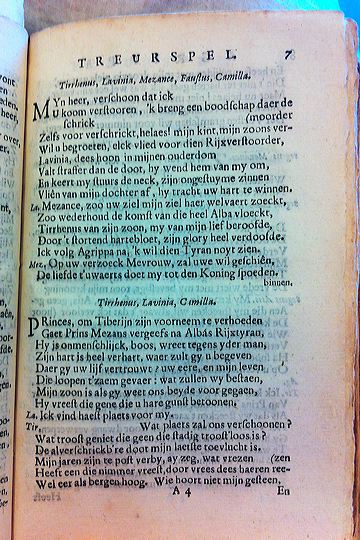 TREURSPEL. 7
Tirrhenus, Lavinia, Mezance, Faustus, Camilla.
MYn heer, verschoon dat ick
U koom verstooren, 'k breng een boodschap daer de
schrick (moorder
Zelfs voor verschrickt, helaes! mijn kint, mijn zoons ver-
Wil u begroeten, elck vlied voor dien Rijxverstoorder,
Lavinia, dees hoop in mijnen ouderdom
Valt straffer dan de doot, hy wend hem van my om,
En keert my stuurs de neck, zijn ongestuyme zinnen
Vliên van mijn dochter af, hy tracht uw hart te winnen.
La. Mezance, zoo uw ziel mijn ziel haer welvaert zoeckt,
Zoo wederhoud de komst van die heel Alba vloeckt,
Tirrhenus van zijn zoon, my van mijn lief beroofde,
Door 't stortend hartebloet, zijn glory heel verdoofde.
Ick volg Agrippa na, 'k wil dien Tyran noyt zien.
Mez. Op uw verzoeck Mevrouw, zal uwe wil geschiên,
De liefde t'uwaerts doet my tot den Koning spoeden.
binnen.
Tirrhenus, Lavinia, Camilla.
PRinces, om Tiberijn zijn voorneem te verhoeden
Gaet Prins Mezans vergeefs na Albás Rijxtyran,
Hy is onmenschlijck, boos, wreet tegens yder man,
Zijn hart is heel verhart, waer zult gy u begeven
Daer gy uw lijf vertrouwt? uw eere, en mijn leven
Die loopen t'zaem gevaer: wat zullen wy bestaen,
Mijn zoon is als gy weet ons beyde voor gegaen,
Hy vreest die gene die u hare gunst betoonen,
La. Ick vind haest plaets voor my.
Tir. Wat plaets zal ons verschoonen?
Wat troost geniet die geen die stadig troost'loos is?
De alverschrickb're doot mijn laetste toevlucht is.
Mijn jaren zijn te post verby, ay zeg, wat vrezen (zen
Heeft een die nimmer vreest, door vrees dees haeren ree-
Wel eer als bergen hoog. Wie boort niet mijn gesteen,
A 4 En